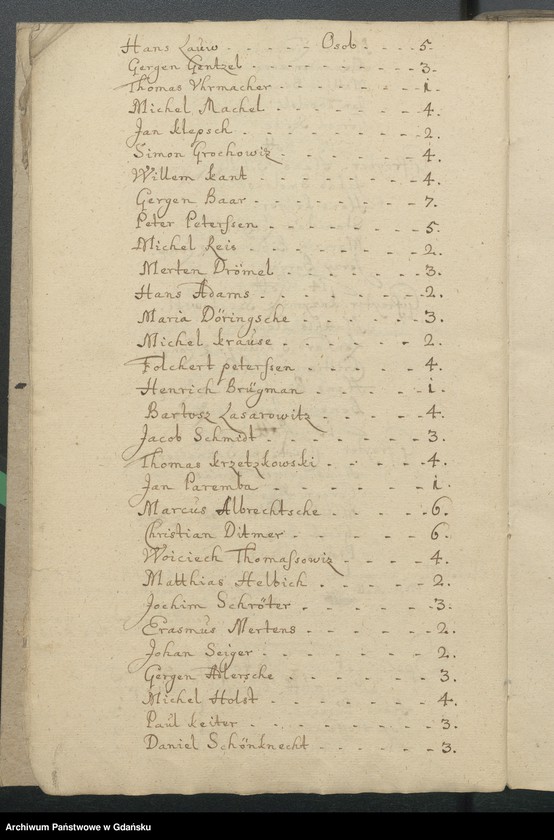 Hans Lauw - - - - - Osob - - - - 5.
Gergen Gentzel - - - - - - - - 3.
Thomas Vhrmacher - - - - - - - i.
Michel Machel - - - - - - - 4.
Jan Klepsch - - - - - - - - 2.
Simon Grochowiz - - - - - - 4.
Willem Kant - - - - - - - - 4.
Gergen Baar - - - - - - - - 7.
Peter Peterssen - - - - - - - 5.
Michel Reis - - - - - - - - 2.
Merten Drömel - - - - - - 3.
Hans Adams - - - - - - - 2.
Maria Döringsche - - - - - - 3.
Michel Krause - - - - - - 2.
Folchert peterssen - - - - - 4.
Henrich Brügman - - - - - i.
Bartosz Lasarowitz - - - - - 4.
Jacob Schmidt - - - - - - - 3.
Thomas Krzetzkowski - - - - - 4.
Jan Paremba - - - - - - - i.
Marcus Albrechtsche - - - - - 6.
Christian Ditmer - - - - - - 6.
Woiciech Thomassowiz - - - - 4.
Matthias Helbich - - - - - 2.
Jochim Schröter - - - - - - 3.
Erasmus Mertens - - - - - - 2.
Johan Seiger - - - - - - - 2.
Gergen Adlersche - - - - - - 3.
Michel Holst - - - - - - - 4.
Paul Keiter - - - - - - - - 3.
Daniel Schönknecht - - - - - - 3.
Archiwum Państwowe w Gdańsku